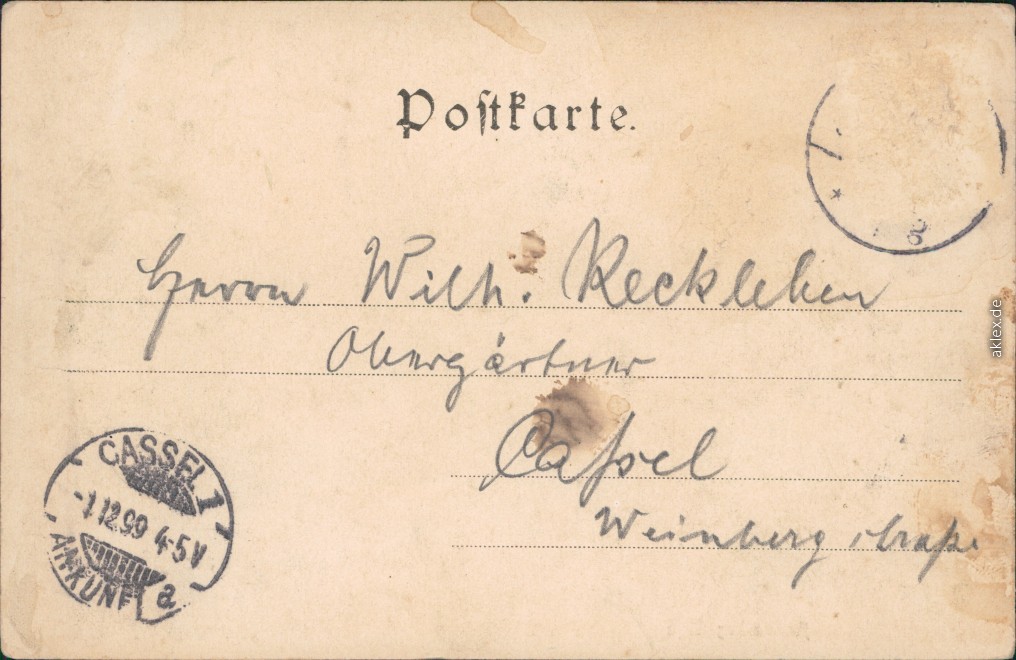 Poſtkarte.
Herrn Wilh. Reckleben
Obergärtner
Caſsel
Weinbergstraße
CASSEL 1
-1.12.99 4-5V
ANKUNFT
a
aklex.de